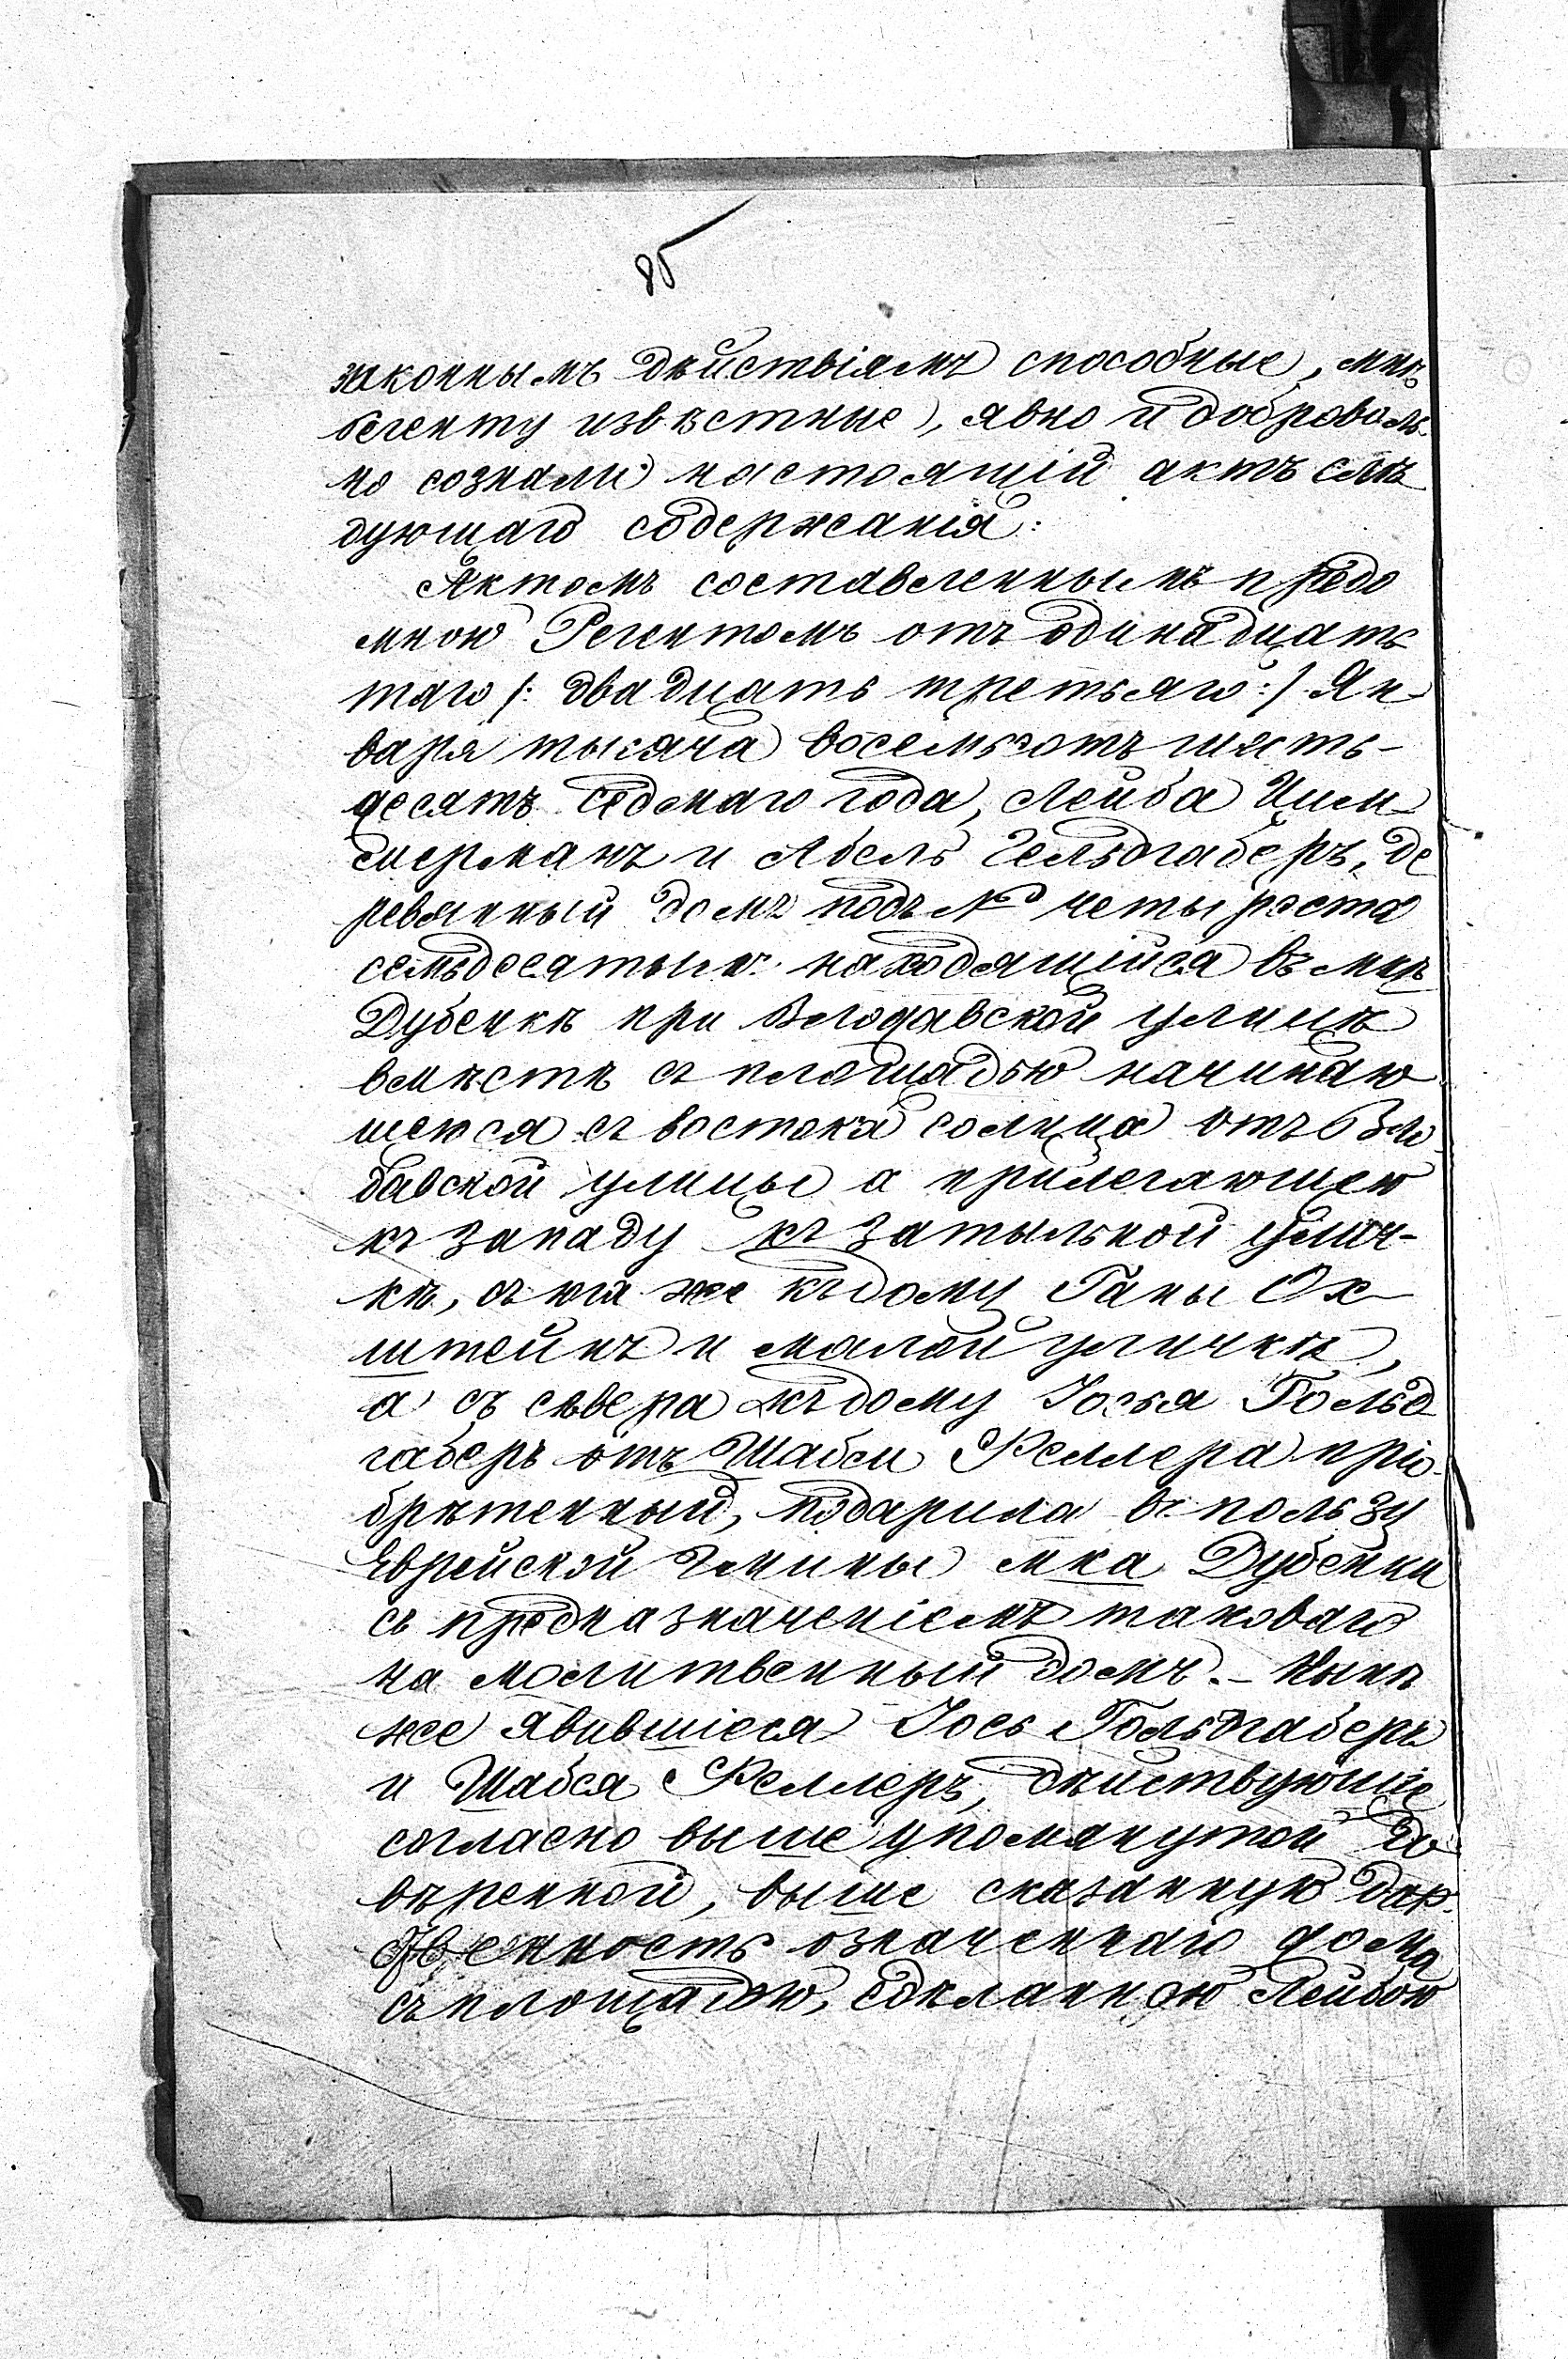 85
законнымъ дѣйствіямъ способные, мнѣ
Регенту извѣстные, явно и доброволь-
но сознали настоящій актъ слѣ
дующаго содержанія:
Актомъ составленнымъ предо
мною Регентомъ отъ одинадцать
таго /: двадцать третьяго :/ Ян-
варя тысяча восемьсотъ шесть-
десятъ седмаго года, Лейба Цим-
мерманъ и Абель Гельдгаберъ, де
ревянный домъ подъ № четыреста
семьдесятымъ находящійся въ мкѣ
Дубенкѣ при Влодавской улицѣ
вмѣстѣ съ площадью начинаю
щеюся съ востока солнца отъ Вло
давской улицы а прилегающею
къ западу къ затыльной улич-
кѣ, съ юга же къ дому Ганы Ох-
штейнъ и малой уличкѣ,
а съ сѣвера къ дому Іосья Гольд
габеръ отъ Шабси Келлера пріо-
брѣтенный, подарила въ пользу
Еврейской Гмины мка Дубенки
съ предназначеніемъ таковаго
на молитвенный домъ. – Нынѣ
же явившіеся Іось Гольдгаберъ
и Шабся Келлеръ, дѣйствующіе
согласно выше упомянутой до
вѣренной, выше сказанную дар-
ственность означеннаго дома
съ площадью, сдѣланною Лейбою